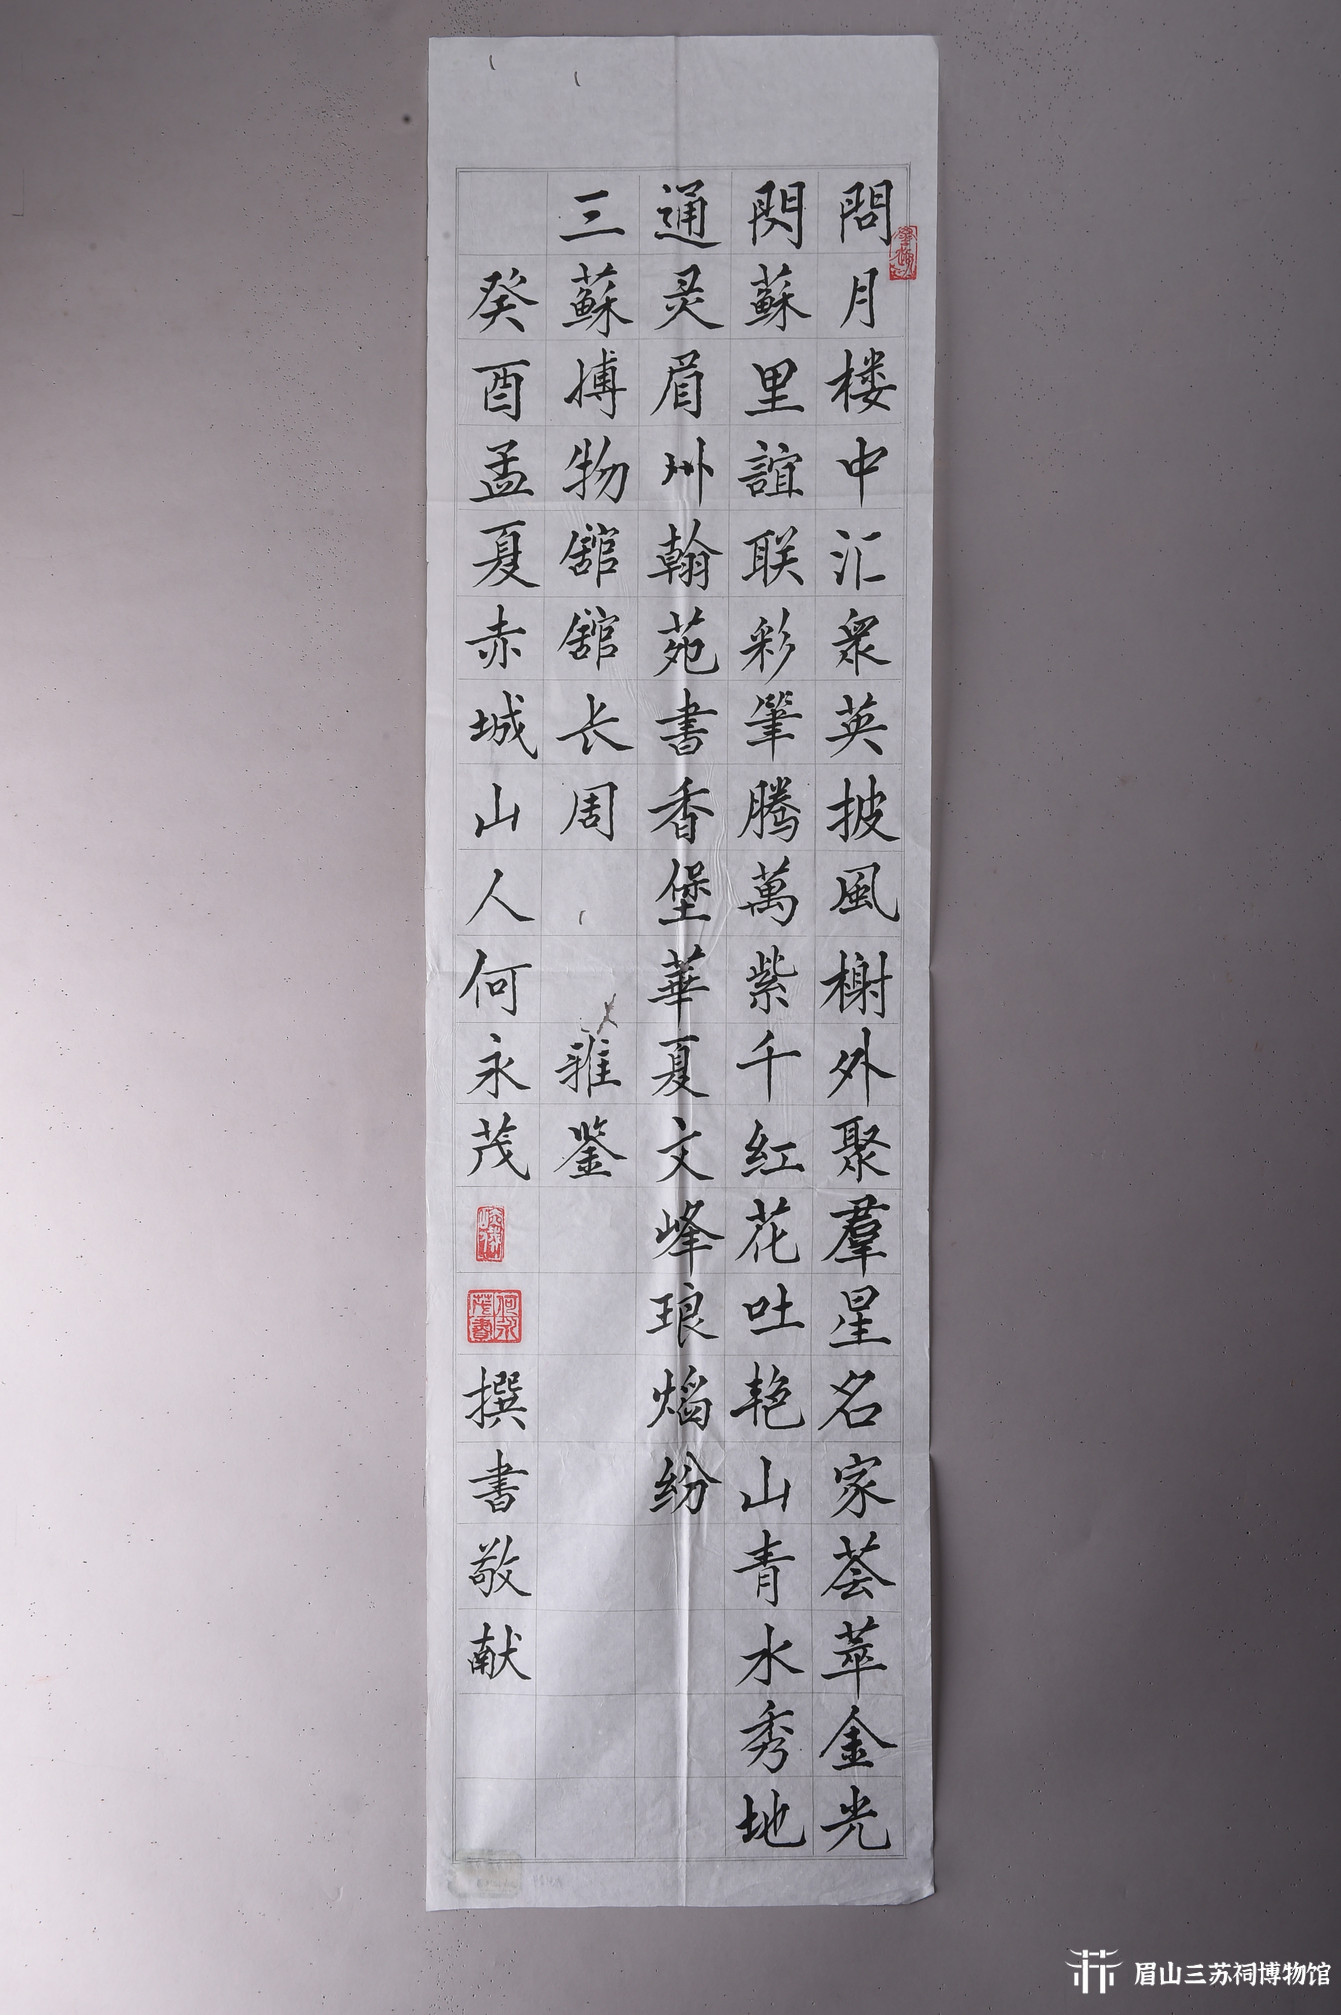 問月楼中汇衆英披風榭外聚羣星名家荟萃金光
閃蘇里誼联彩筆腾萬紫千红花吐艳山青水秀地
通灵眉州翰苑書香堡華夏文峰琅熖纷
三蘇博物舘舘长周
雅鉴
癸酉孟夏赤城山人何永茂
何永茂書
撰書敬献
眉山三苏祠博物馆